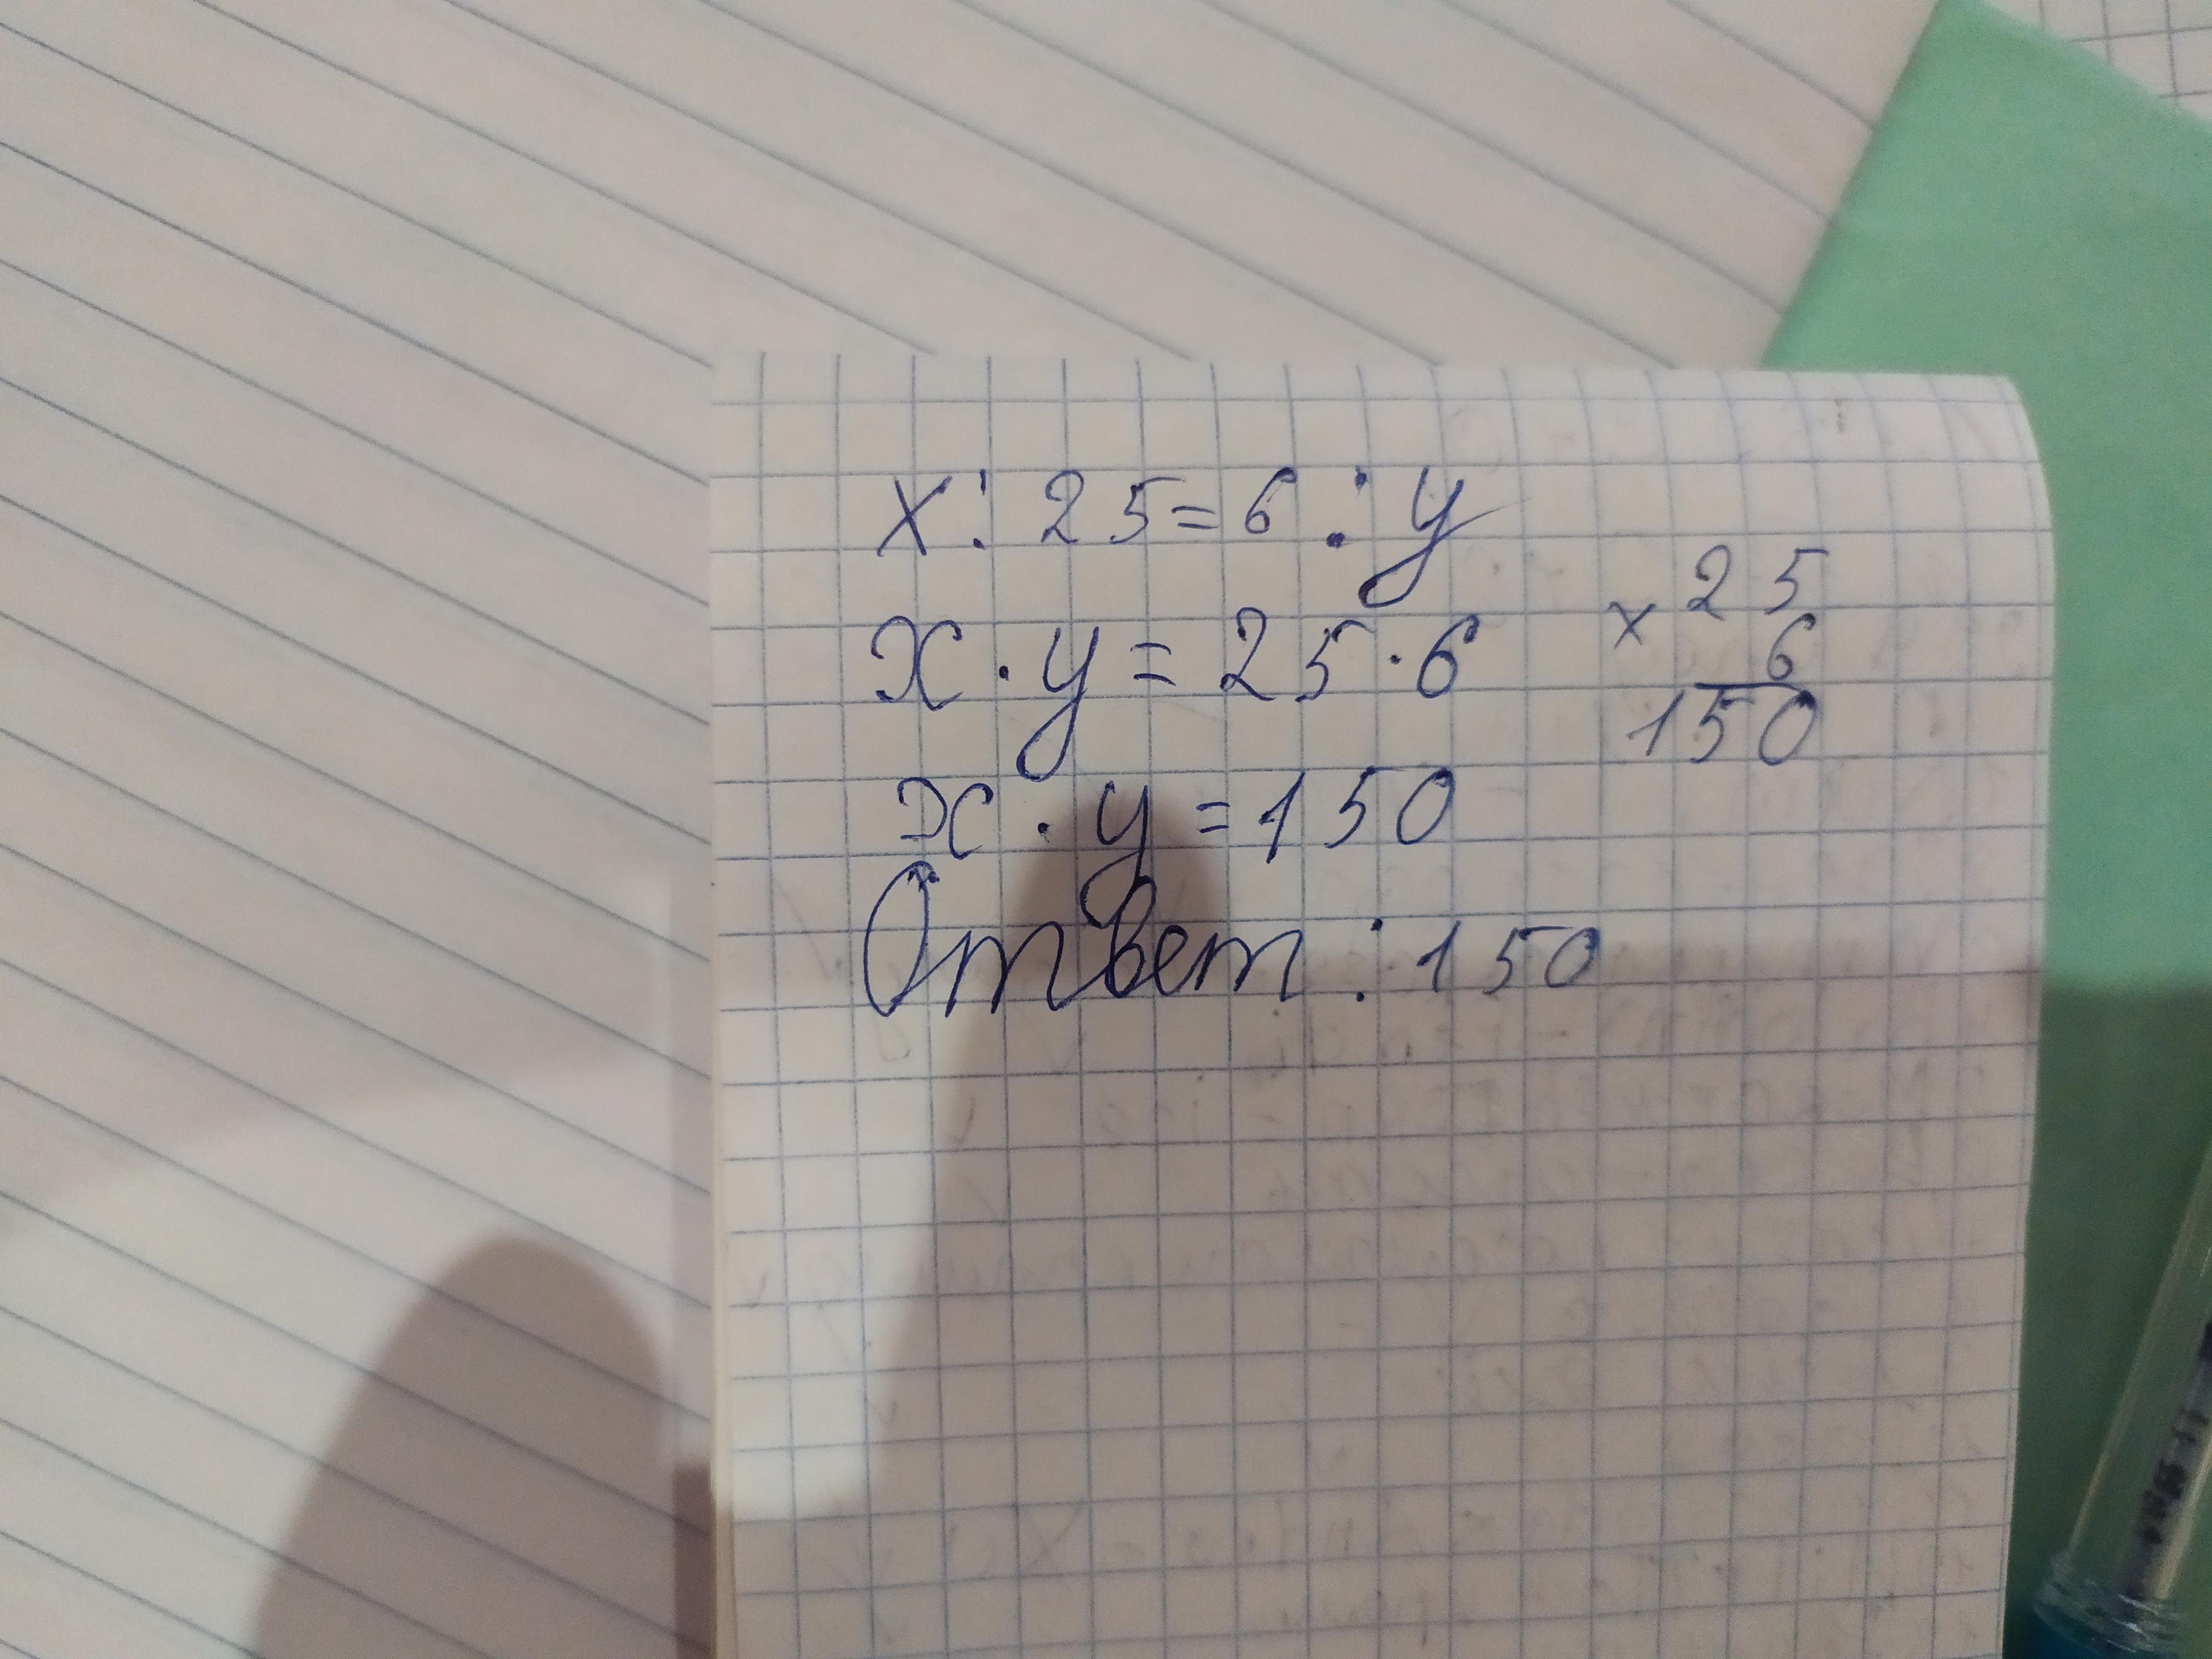 x : 25 = 6 : y
x · y = 25 · 6
x · y = 150
Ответ : 150
× 25
6
150